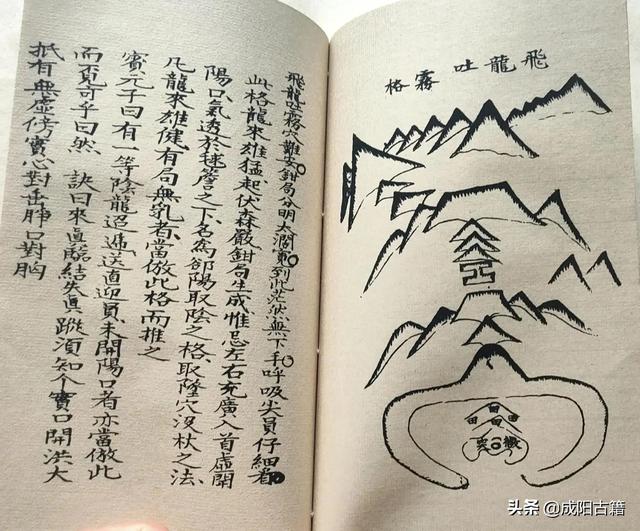 格霧吐龍飛
飛龍吐霧穴難安鉗局分明太濶寬到此茫然無下手呼吸尖員仔細看
此格龍來雄猛起伏森嚴鉗局生成惟忌左右充廣入首虛開
陽口氣透於毬簷之下名為卻陽取陰之格取陰穴沒杖之法
凡龍來雄健有局無乳者當倣此格而推之
賓元子曰有一等陰龍迢遞送直迎員未開陽口者亦當倣此
而覓可乎曰然 訣曰來真臨結失真蹤須知个實口開洪大
抵有無虛倚實心對缶脖口對胸
田
田 田
田 田
頭条 @成阳古籍